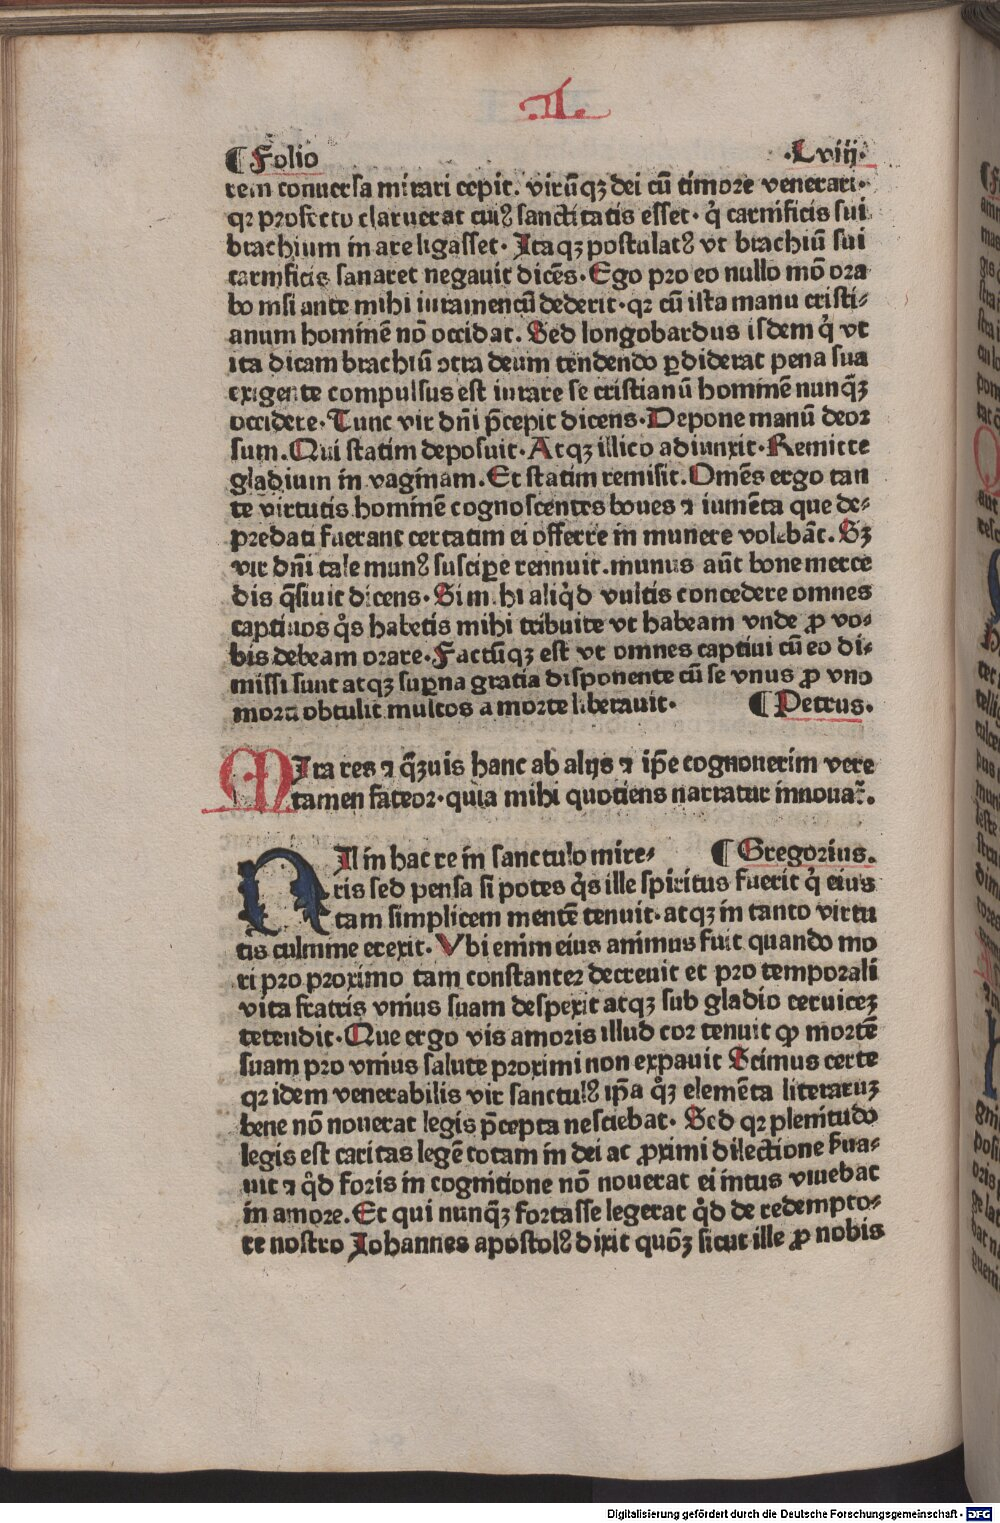 .II.
¶ Folio .Lviij.
rem conuersa mirari cepit. virūqꝫ dei cū timore venerari.
qꝛ profecto claruerat cuiꝰ sanctitatis esset. q̇ carnificis sui
brachium in are ligasset. Itaqꝫ postulatꝰ vt brachiū sui
carnificis sanaret negauit dicēs. Ego pro eo nullo mō ora
bo nisi ante mihi iuramentū dederit. qꝛ cū ista manu cristi⸗
anum hominē nō occidat. Sed longobardus isdem q̇ vt
ita dicam brachiū ↄtra deum tendendo ꝑdiderat pena sua
exigente compulsus est iurare se cristianū hominē nunqꝫ̄
occidere. Tunc vir dn̄i p̄cepit dicens. Depone manū deoꝛ
sum. Qui statim deposuit. Atqꝫ illico adiunxit. Remitte
gladium in vaginam. Et statim remisit. Omēs ergo tan
te virtutis hominē cognoscentes boues ⁊ iumēta que de⸗
predati fuerant certatim ei offerre in munere volebāt. Sꝫ
vir dn̄i tale munꝰ suscipere rennuit. munus aūt bone merce
dis q̄siuit dicens. Si mihi aliq̇d vultis concedere omnes
captiuos q̇s habetis mihi tribuite vt habeam vnde ꝓ vo⸗
bis debeam orare. Factūqꝫ est vt omnes captiui cū eo di⸗
missi sunt atqꝫ suꝑna gratia disponente cū se vnus ꝓ vno
morti obtulit multos a morte liberauit. ¶ Petrus.
MIra res ⁊ qꝫ̄uis hanc ab alijs ⁊ ip̄e cognouerim vere
tamen fateoꝛ. quia mihi quotiens narratur innouaꝛ̄.
NIl in hac re in sanctulo mire⸗ ¶ Gregorius.
ris sed pensa si potes q̇s ille spiritus fuerit q̇ eius
tam simplicem mentē tenuit. atqꝫ in tanto virtu
tis culmine erexit. Vbi enim eius animus fuit quando mo
ri pro proximo tam constanteꝛ decreuit et pro temporali
vita fratris vnius suam despexit atqꝫ sub gladio ceruiceꝫ
tetendit. Que ergo vis amoris illud cor tenuit ꝙ mortē
suam pro vnius salute proximi non expauit Scimus certe
qꝛ idem venerabilis vir sanctulꝰ ip̄a q̇ꝫ elemēta literaruꝫ
bene nō nouerat legis p̄cepta nesciebat. Sed qꝛ plenitudo
legis est caritas legē totam in dei ac ꝓximi dilectione ẜua⸗
uit ⁊ q̇d foris in cognitione nō nouerat ei intus viuebat
in amore. Et qui nunqꝫ̄ fortasse legerat q̇d de redempto⸗
re nostro Johannes apostolꝰ dixit quōꝫ sicut ille ꝓ nobis
Digitalisierung gefördert durch die Deutsche Forschungsgemeinschaft - DFG